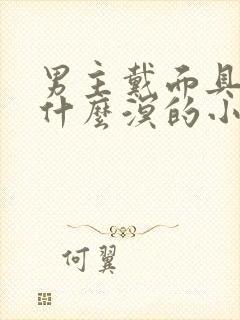 男主戴面具
什麼漠的小
何翼